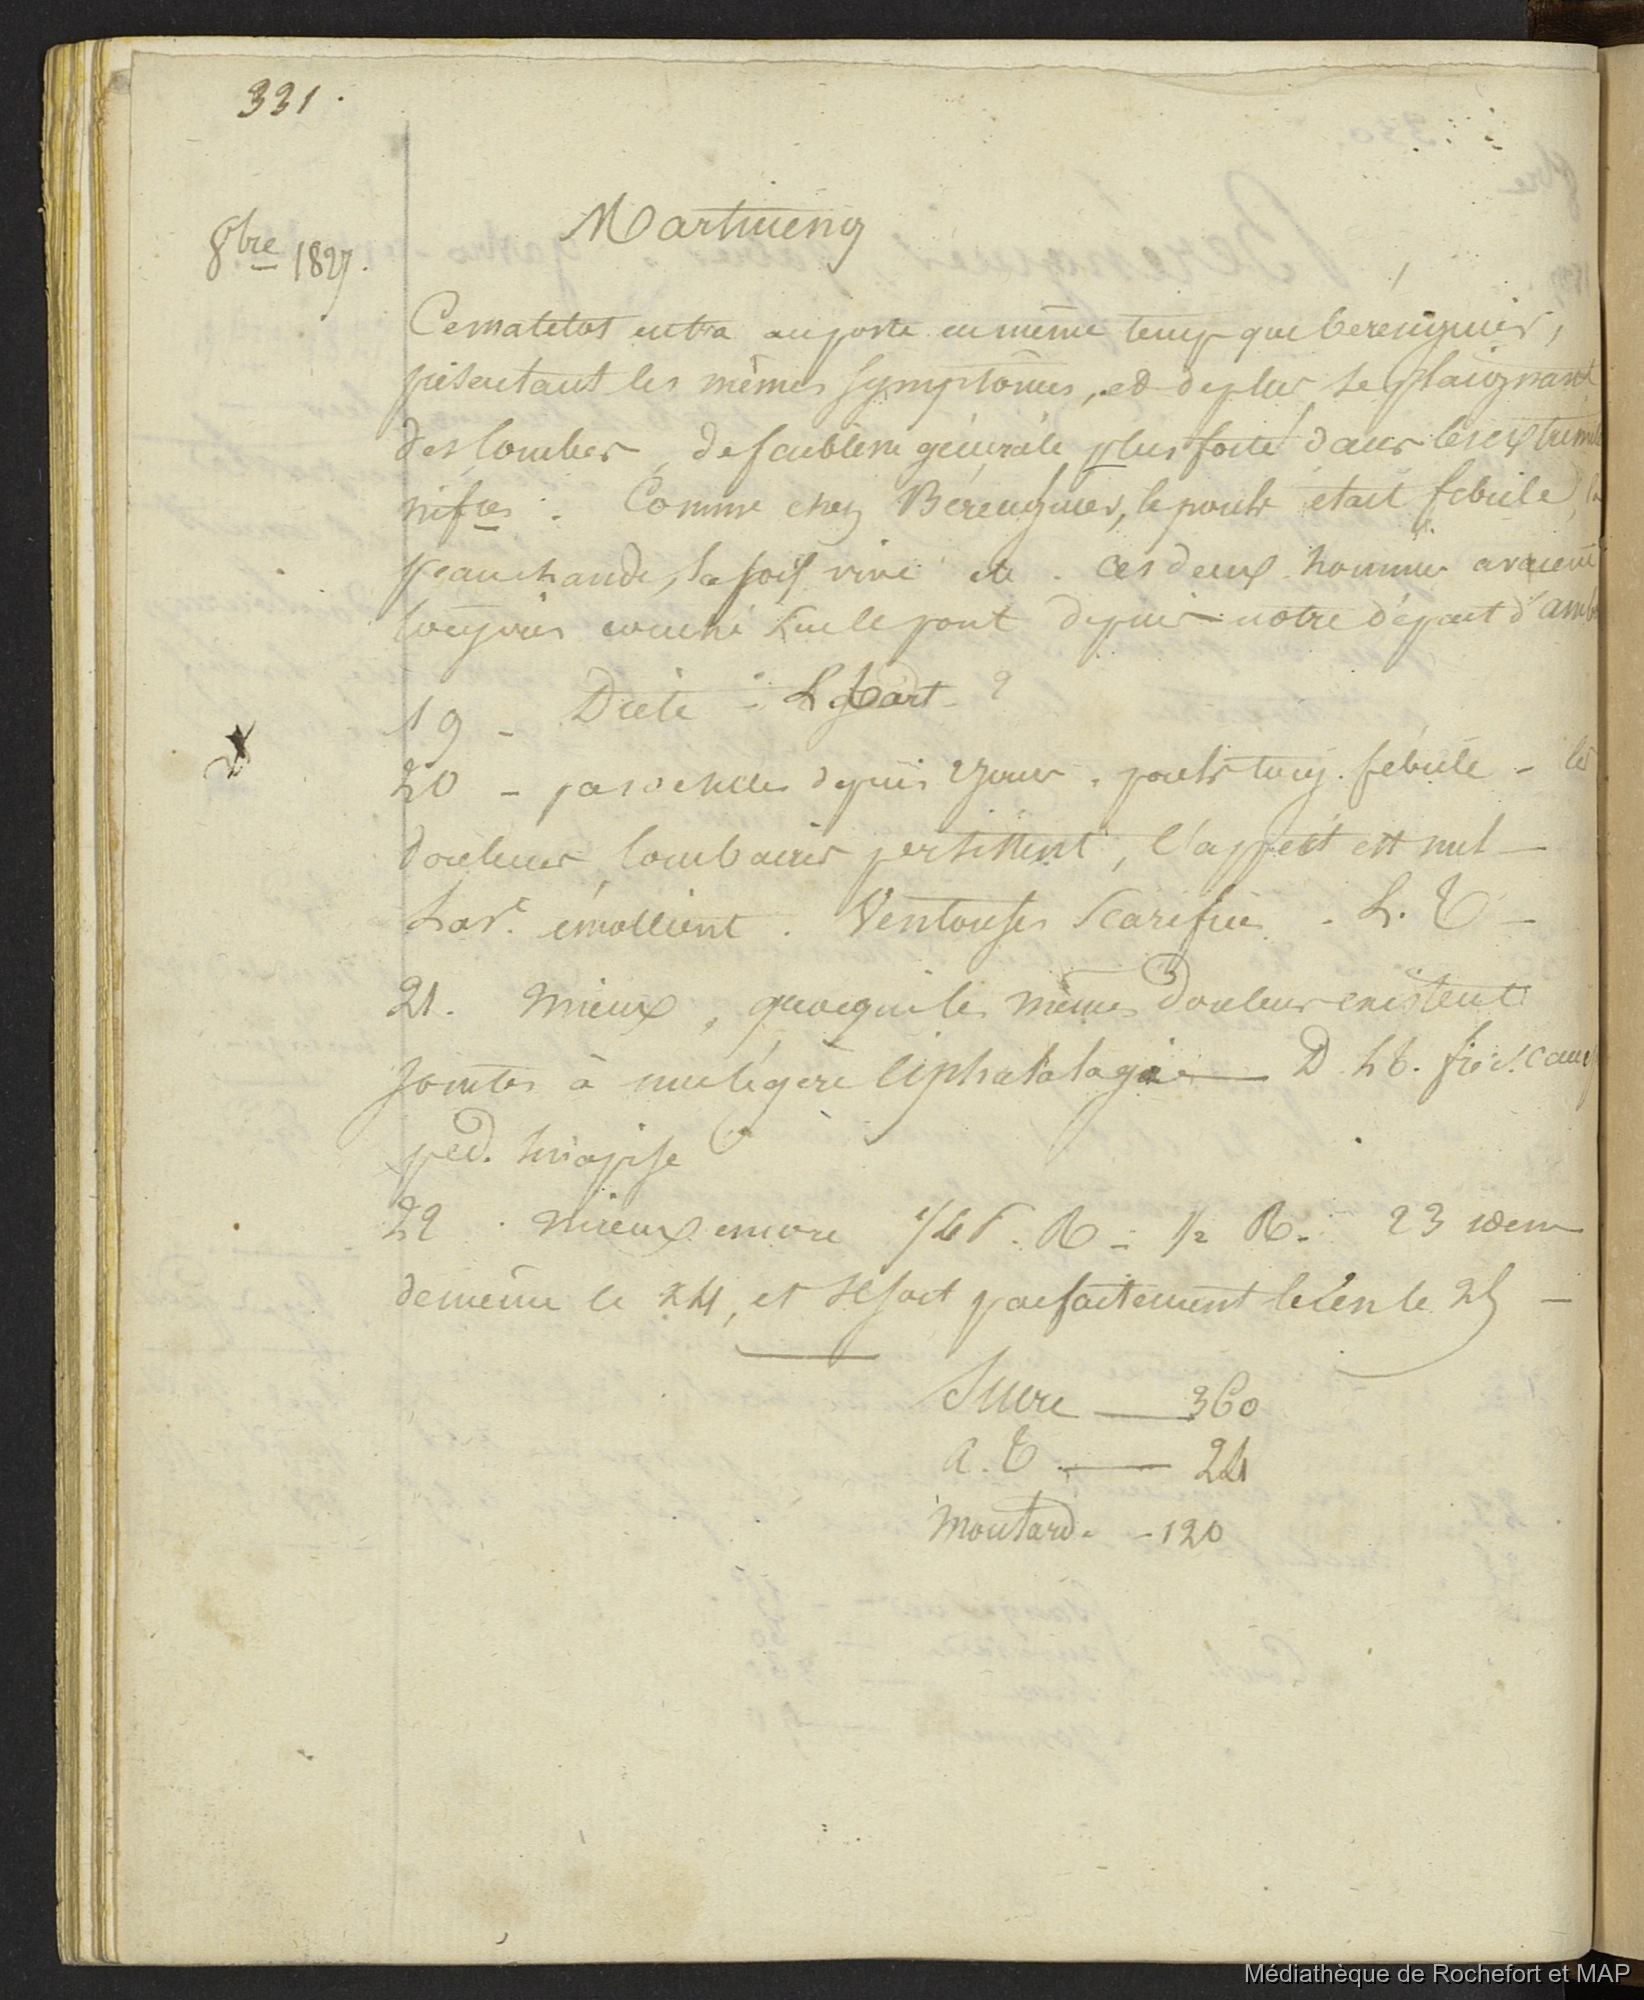 331.
8bre 1827.
Martineng
Ce matelot entra au poste en même temp que bérenguier,
présentant les mêmes symptômes, et de plus se plaignant
des lombes, de faiblesse générale plus forte dans les extrémi
nifres. Comme chez Bérenguier, le pouls était febrile, la
peau chaude, la soif vive etc. ces deux hommes avaient
toujours couché sur le pont depuis notre départ d'amb
19 - Diète - L tart - 2
20 - pas de selles depuis 2 jours. pouls touj. fébrile - les
douleurs lombaires persistent, l'appétit est nul -
Lavt. émollient. Ventouses Scarifiées. L. T -
21. Mieux, quoique les mêmes douleurs existent
jointes à une légère céphalalagie - D. L t. fri. camp
ped. sinapisé
22. Mieux encore 1/4 F. R - 1/2 R. 23 idem
de même le 24, et il sort parfaitement bien le 25 -
Sucre - 360
a. T - 24
Moutarde - 120
Médiathèque de Rochefort et MAP